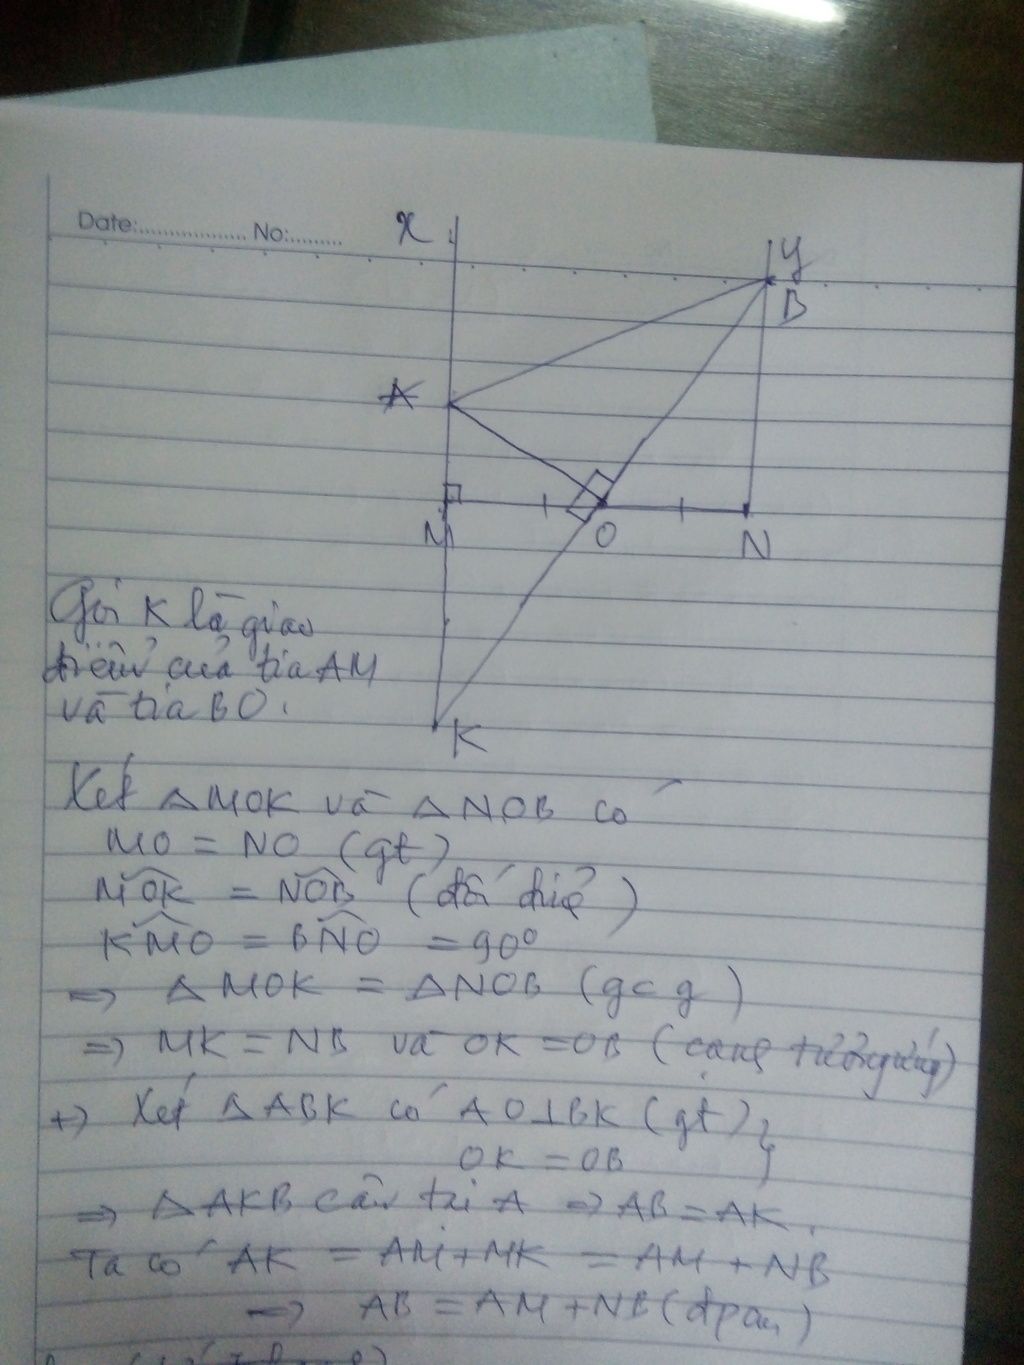 Date:.................... No:.........
x
y
B
A
M
O
N
K
Gọi K là giao
điểm của tia AM
và tia BO.
Xét △MOK và △NOB có
MO = NO (gt)
MÔK = NÔB (đối đỉnh)
KM̂O = BN̂O = 90°
=> △MOK = △NOB (gcg)
=> MK = NB và OK = OB (cạnh tương ứng)
+) Xét △ABK có AO⊥BK (gt) }
OK = OB
=> △AKB cân tại A => AB = AK.
Ta có AK = AM + MK = AM + NB
=> AB = AM + NB (đpcm)